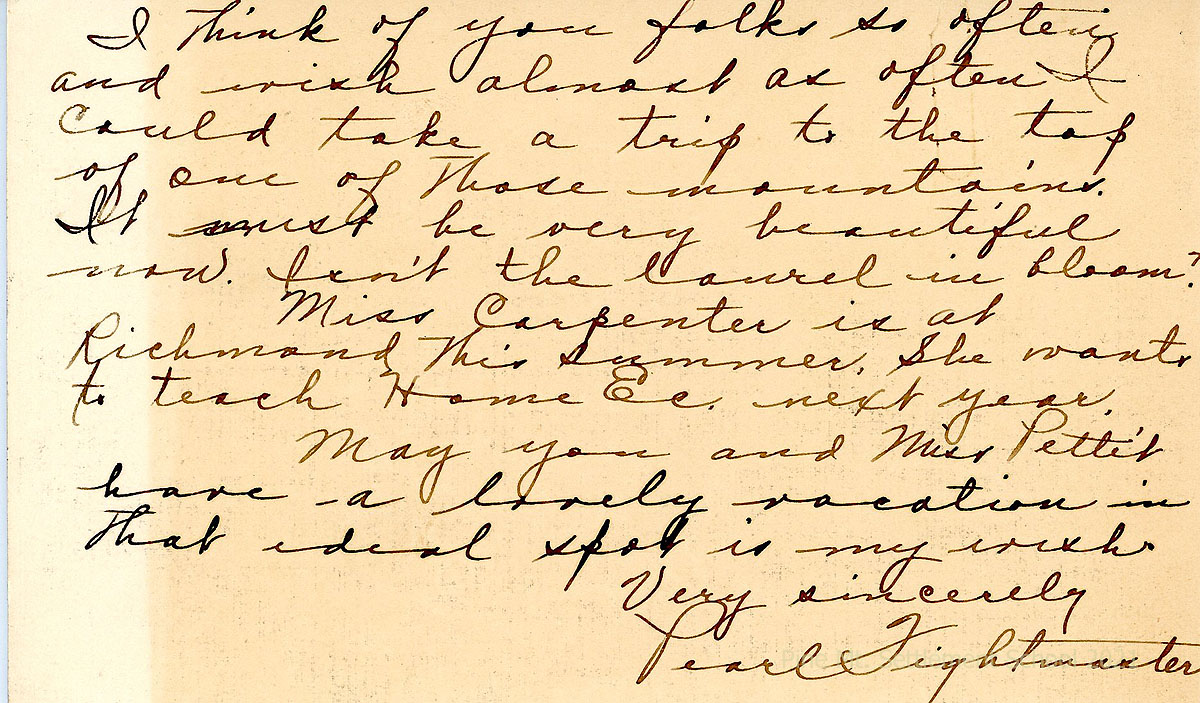 I think of you folks so often
and wish almost as often I
could take a trip to the top
of one of those mountains.
It must be very beautiful
now. Isn't the laurel in bloom?
Miss Carpenter is at
Richmond this summer. She wants
to teach Home Ec. next year.
May you and Miss Pettit
have a lovely vacation in
that ideal spot is my wish.
Very sincerely
Pearl Fightmaster